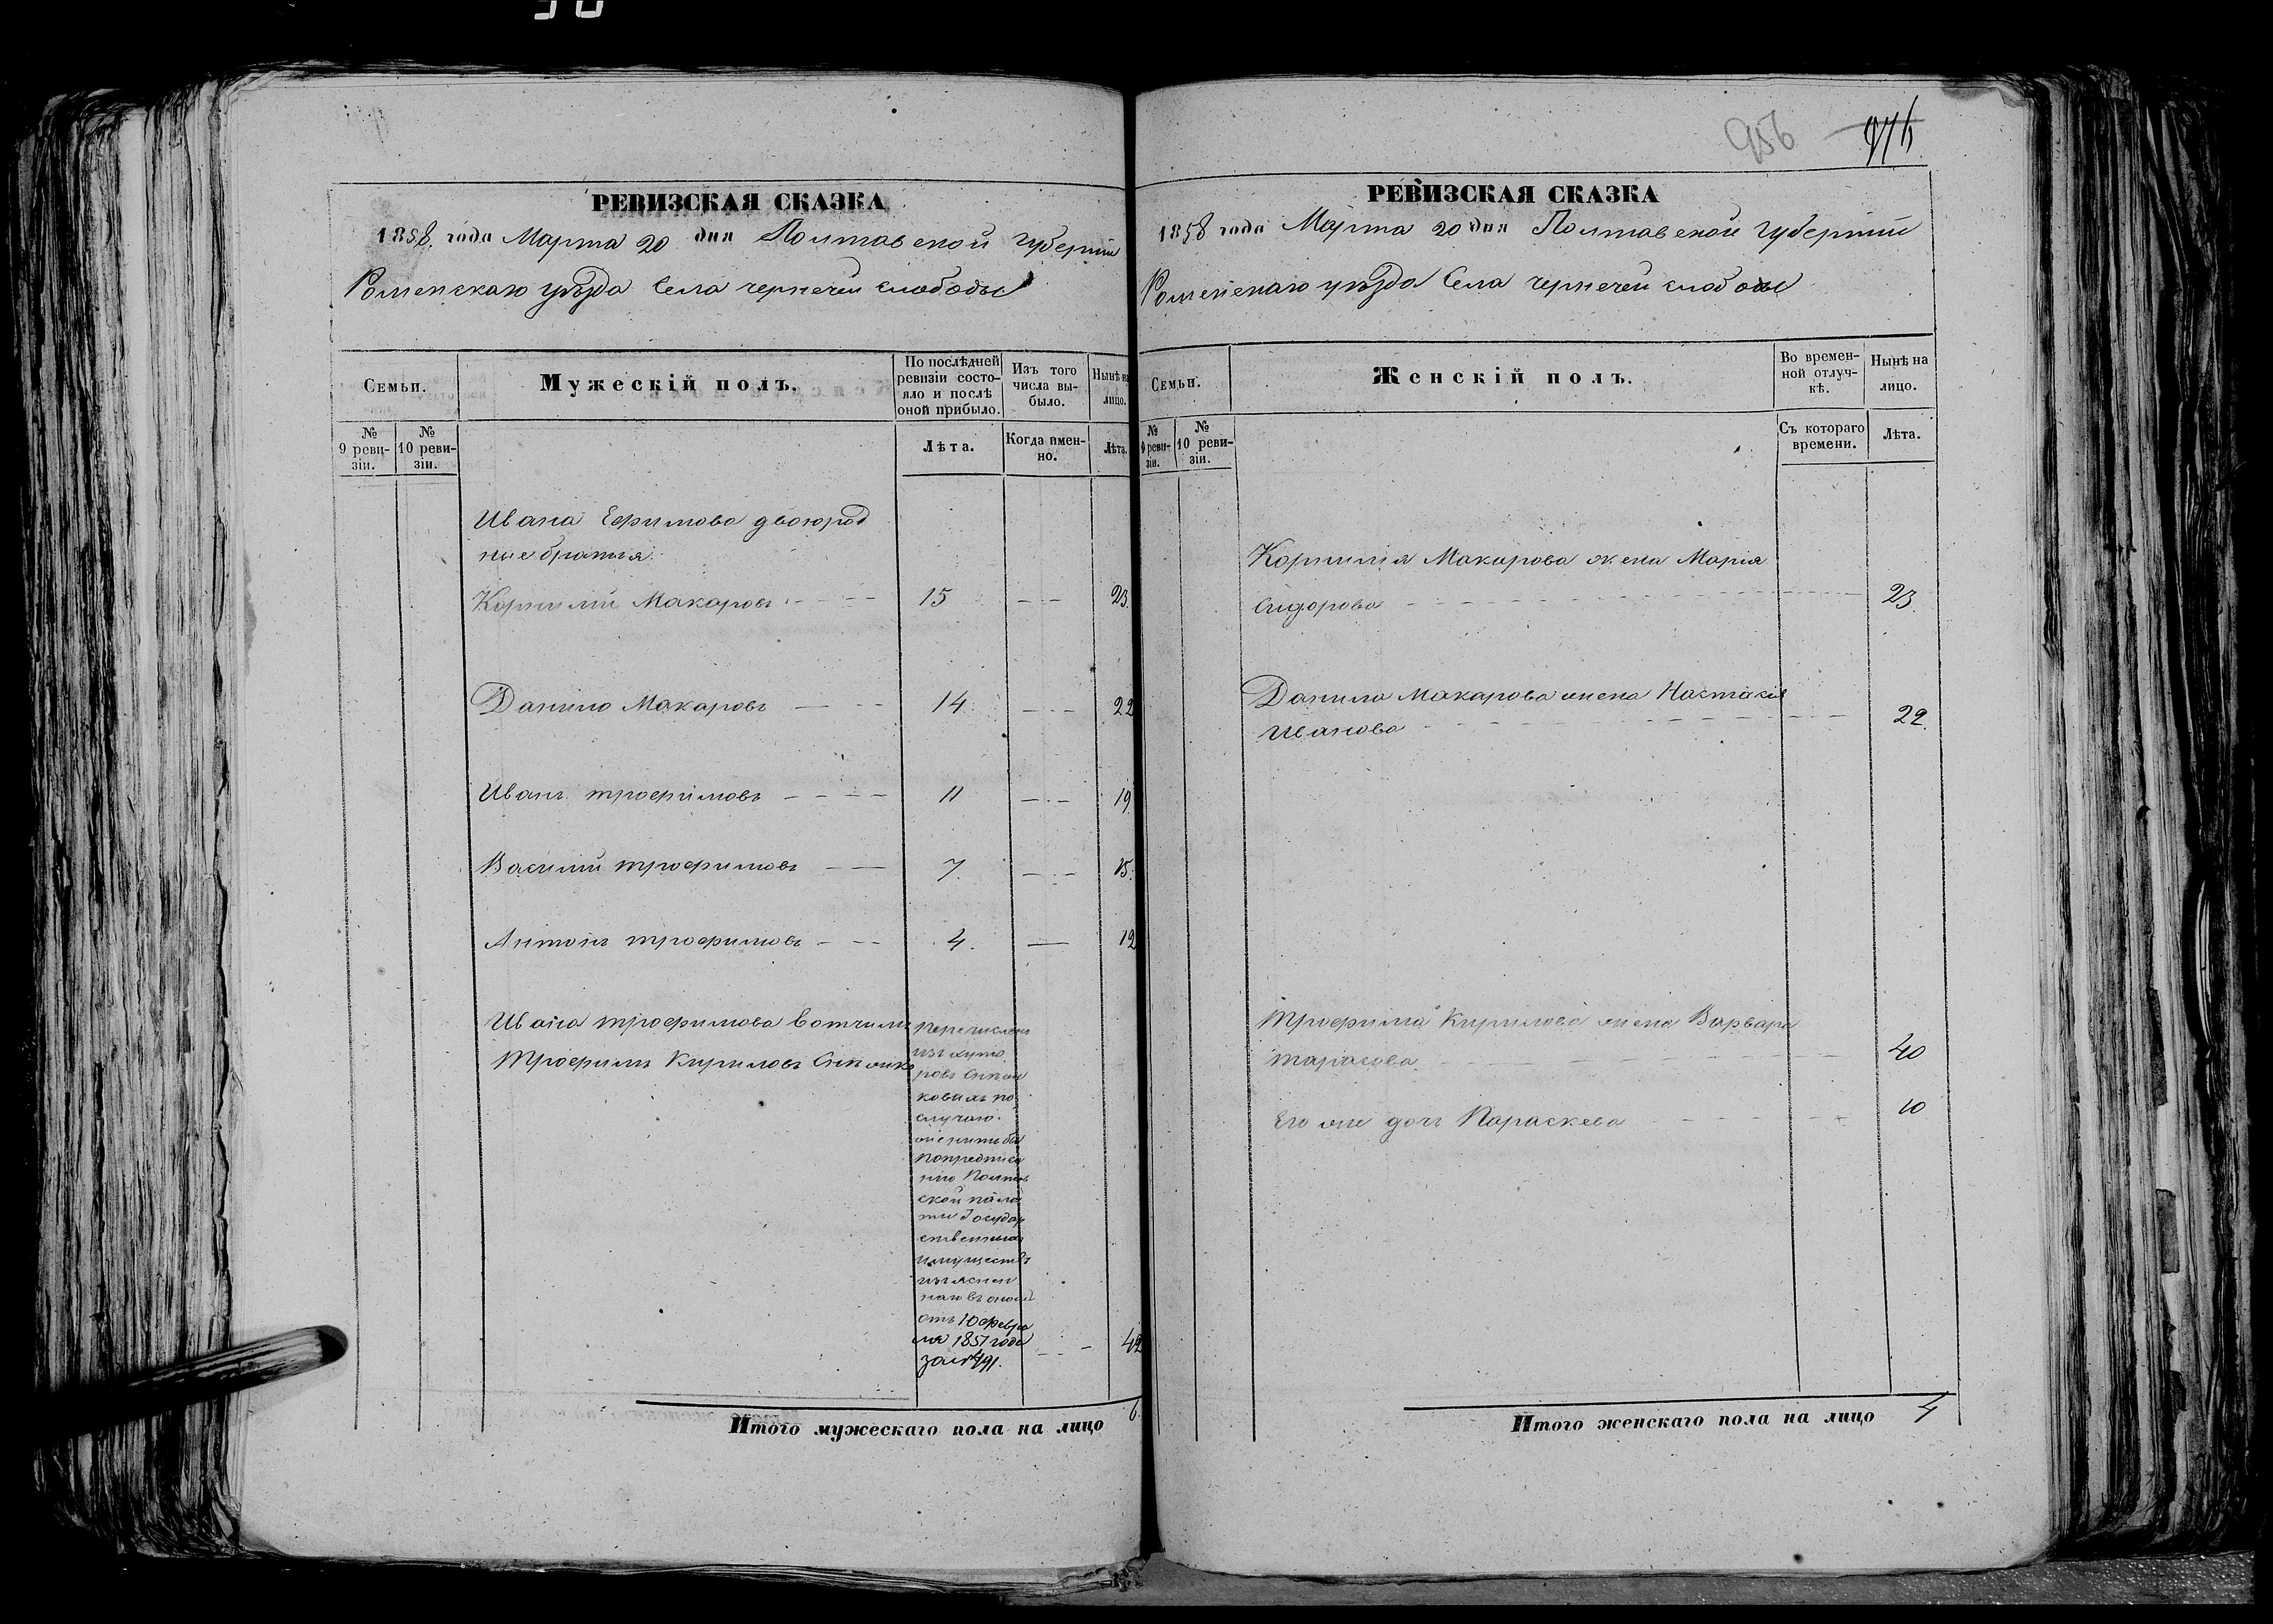 956 976
РЕВИЗСКАЯ СКАЗКА
1858 года Марта 20 дня Полтавской губерніи
Роменскаго уѣзда Села чернечей слободы
Семьи.
Мужескій полъ.
По послѣдней ревизіи состояло и послѣ оной прибыло.
Изъ того числа выбыло.
Нынѣ на лицо.
№ 9 ревизіи.
№ 10 ревизіи.
Лѣта.
Когда именно.
Лѣта.
Ивана Ефимова двоюрод
ные братья
Корнилій Макаровъ 15 23.
Данило Макаровъ 14. 22
Иванъ трофимовъ 11 19
Василий трофимовъ 7. 15.
Антонъ трофимовъ 4. 12
Ивана трофимова вотчимъ
Трофимъ Кириловъ
перечисленъ
изъ хуто
ровъ
ковыхъ по
случаю
женитьбы
попредписа
нию Полтав
ской пала
ты Государ
ственныхъ
имуществъ
отъ 10 февра
ля 1851 года
за № 491. 42
Итого мужескаго пола на лицо 6.
РЕВИЗСКАЯ СКАЗКА
1858 года Марта 20 дня Полтавской губерніи
Роменскаго уѣзда Села чернечей слободы
Семьи.
Женскій полъ.
Во временной отлучкѣ.
Нынѣ на лицо.
№ 9 ревизіи.
№ 10 ревизіи.
Съ котораго времени.
Лѣта.
Корнилия Макарова жена Мария
Сидорова 23.
Данила Макарова жена Настасия
Иванова 22.
Трофима Кирилова жена Варвара
тарасова 40
Его же дочь Параскева 10
Итого женскаго пола на лицо 4